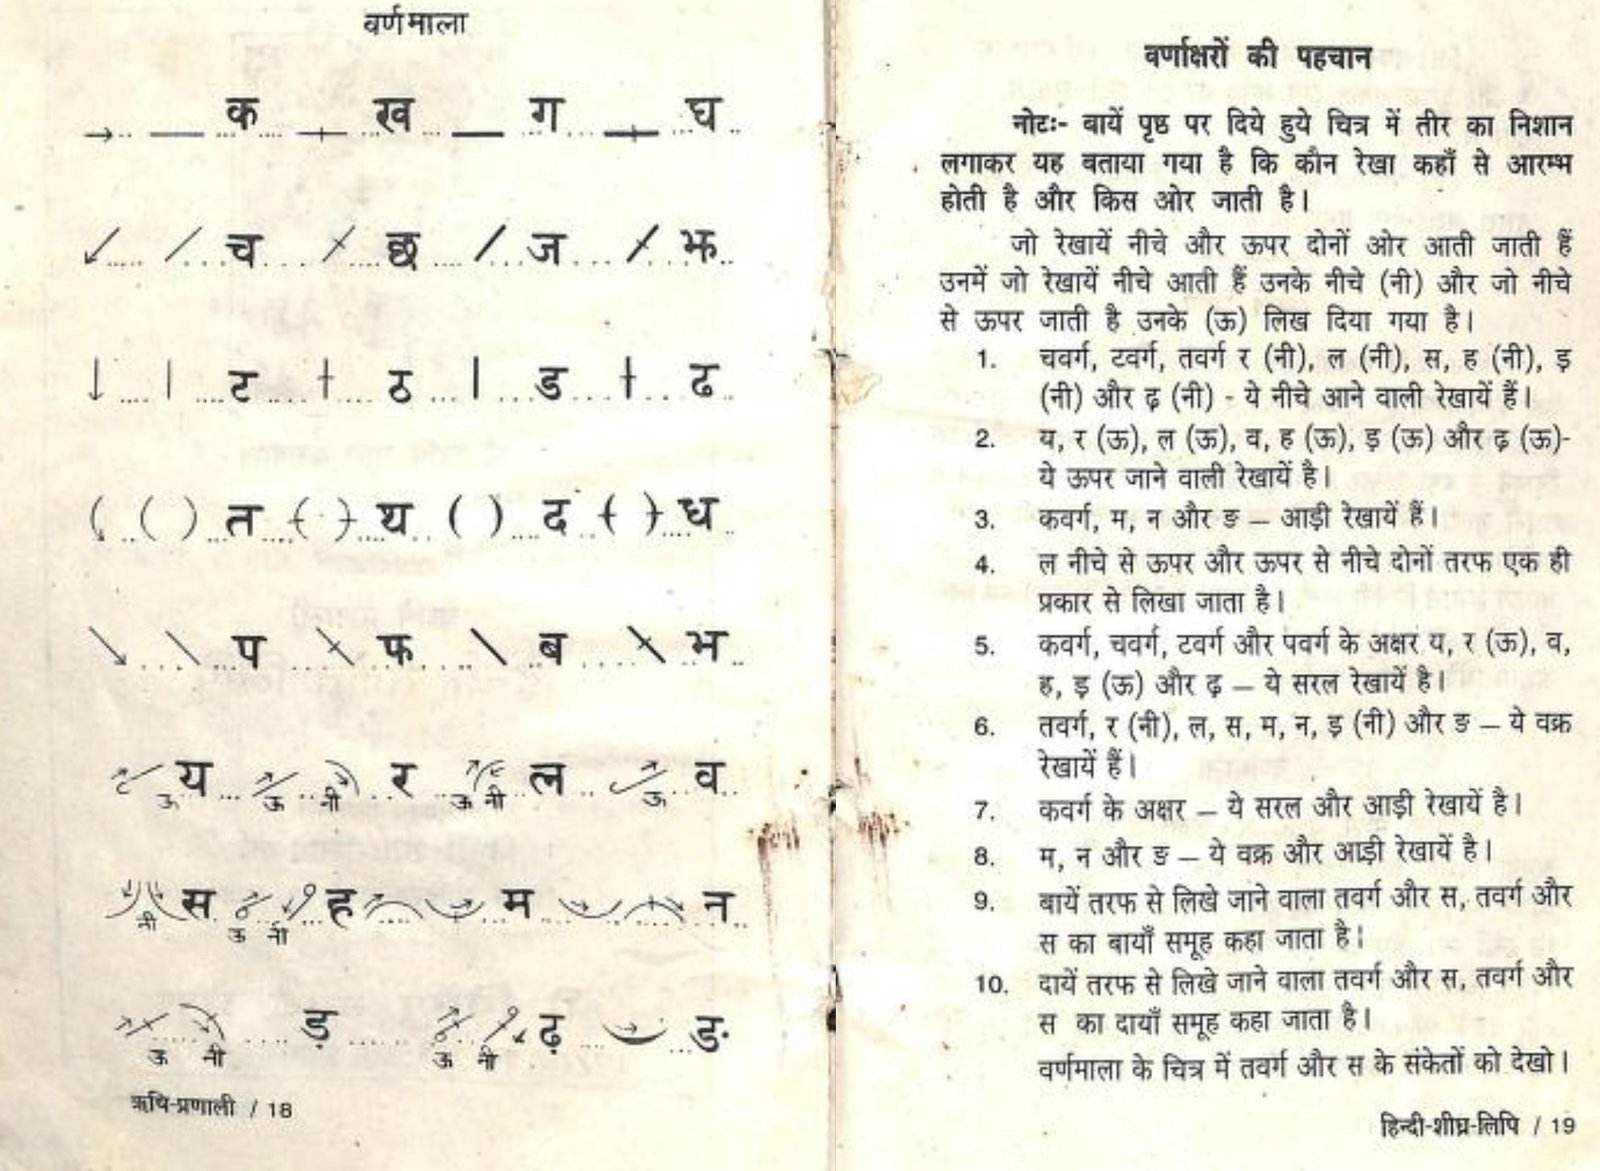 वर्णमाला
क ख ग घ
च छ ज झ
ट ठ ड ढ
त थ द ध
प फ ब भ
ऊ य ऊ नी र ऊ नी ल ऊ व
नी स ऊ नी ह म न
ऊ नी ड़ ऊ नी ढ़ ङ
ऋषि-प्रणाली / 18
वर्णाक्षरों की पहचान
नोटः- बायें पृष्ठ पर दिये हुये चित्र में तीर का निशान
लगाकर यह बताया गया है कि कौन रेखा कहाँ से आरम्भ
होती है और किस ओर जाती है।
जो रेखायें नीचे और ऊपर दोनों ओर आती जाती हैं
उनमें जो रेखायें नीचे आती हैं उनके नीचे (नी) और जो नीचे
से ऊपर जाती है उनके (ऊ) लिख दिया गया है।
1. चवर्ग, टवर्ग, तवर्ग र (नी), ल (नी), स, ह (नी), इ
(नी) और ढ़ (नी) - ये नीचे आने वाली रेखायें हैं।
2. य, र (ऊ), ल (ऊ), व, ह (ऊ), ड़ (ऊ) और ढ़ (ऊ)-
ये ऊपर जाने वाली रेखायें है।
3. कवर्ग, म, न और ङ – आड़ी रेखायें हैं।
4. ल नीचे से ऊपर और ऊपर से नीचे दोनों तरफ एक ही
प्रकार से लिखा जाता है।
5. कवर्ग, चवर्ग, टवर्ग और पवर्ग के अक्षर य, र (ऊ), व,
ह, इ (ऊ) और ढ़ – ये सरल रेखायें है।
6. तवर्ग, र (नी), ल, स, म, न, इ (नी) और ङ – ये वक्र
रेखायें हैं।
7. कवर्ग के अक्षर – ये सरल और आड़ी रेखायें है।
8. म, न और ङ – ये वक्र और आड़ी रेखायें है।
9. बायें तरफ से लिखे जाने वाला तवर्ग और स, तवर्ग और
स का बायाँ समूह कहा जाता है।
10. दायें तरफ से लिखे जाने वाला तवर्ग और स, तवर्ग और
स का दायाँ समूह कहा जाता है।
वर्णमाला के चित्र में तवर्ग और स के संकेतों को देखो।
हिन्दी-शीघ्र-लिपि / 19